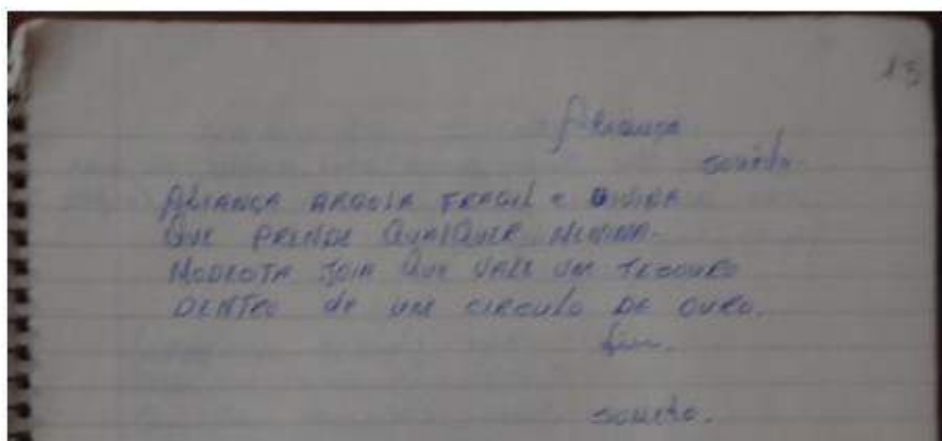 15
Aliança
soneto.
ALIANÇA ARGOLA FRAGIL e DIVINA
QUE PRENDE QUALQUER MENINA.
MODESTA JOIA QUE VALE UM TESOURO
DENTRO de UM CIRCULO DE OURO.
fim.
soneto.